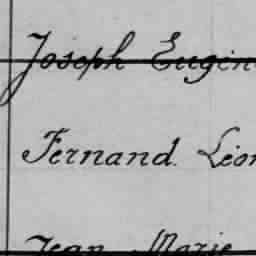 Joseph Eugène
Fernand. Léon
Jean Marie